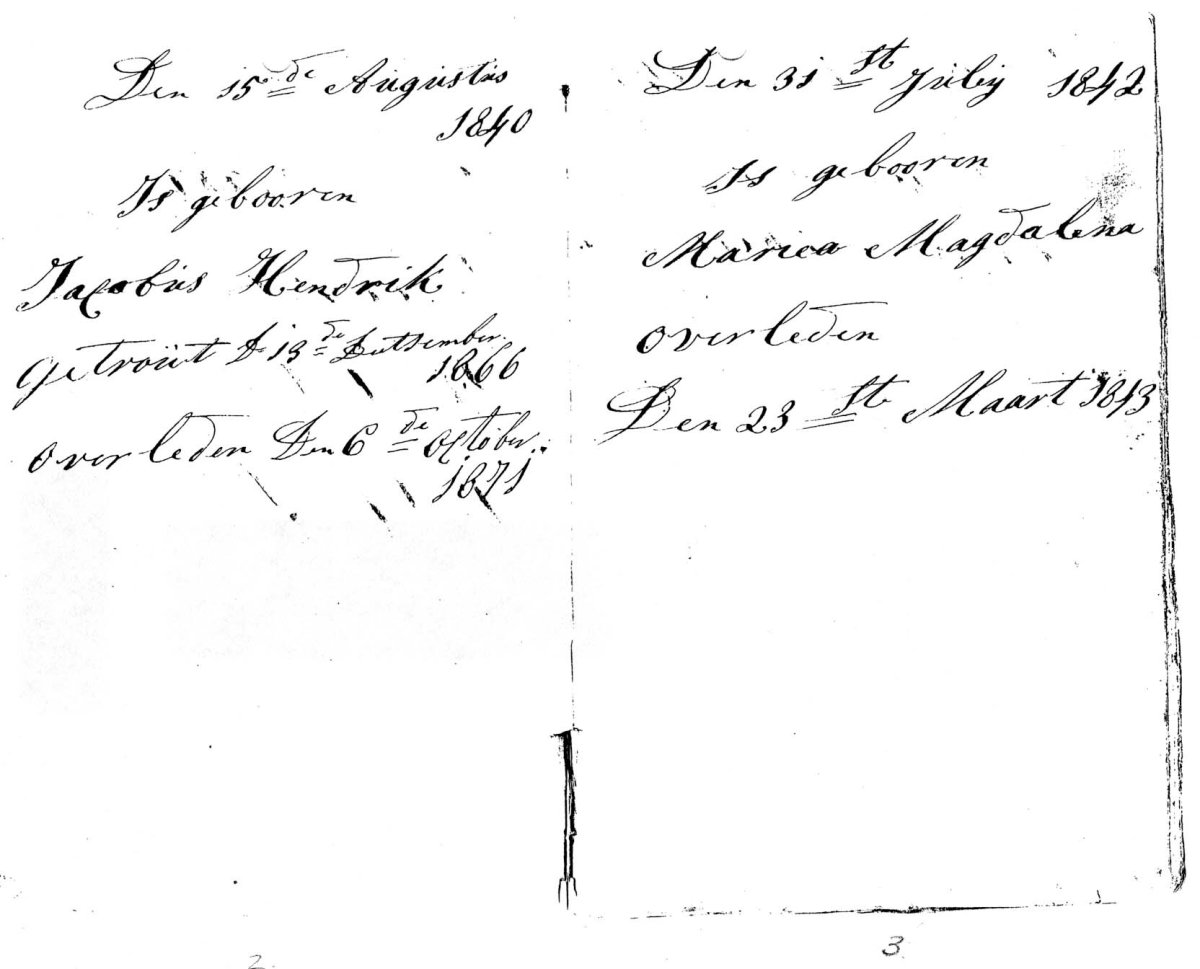 Den 15de Augustus
1840
Is gebooren
Jacobus Hendrik
getrouwt D 13de
1866
overleden Den 6de October
1871
2
Den 31st July 1842
Is gebooren
Marica Magdalena
overleden
Den 23st Maart 1843
3